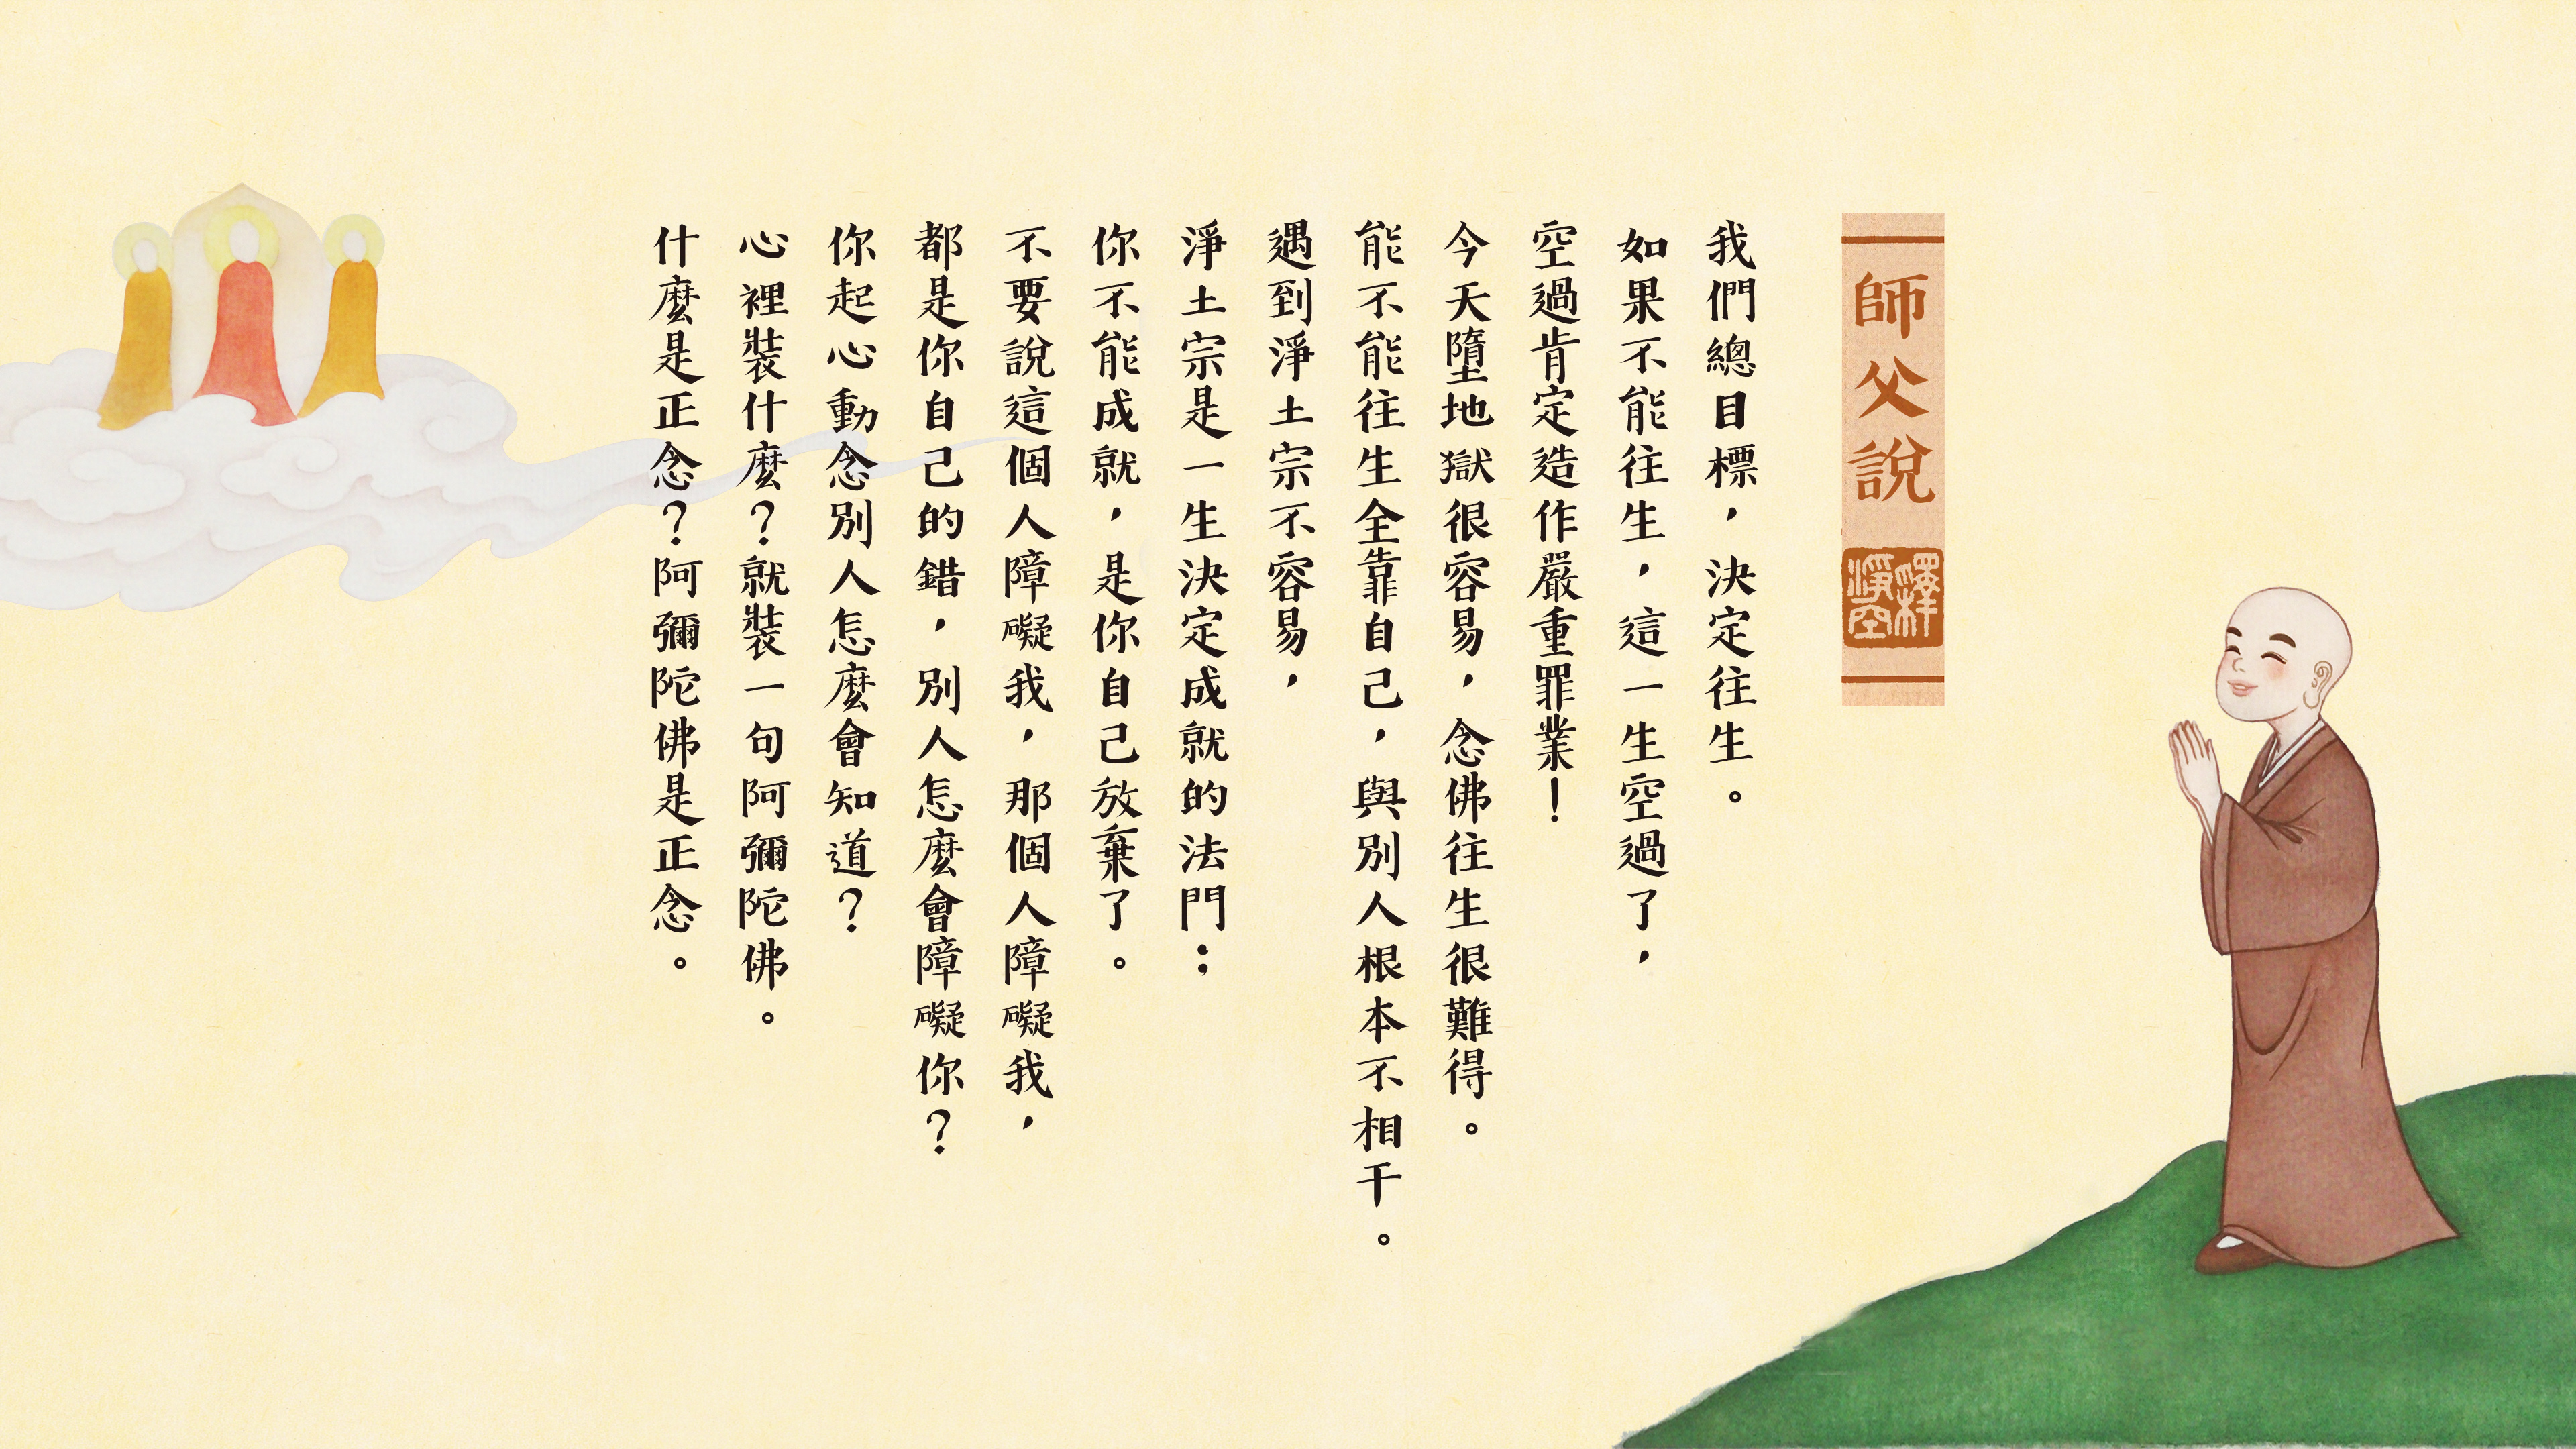 師父說
釋淨空
我們總目標，決定往生。
如果不能往生，這一生空過了，
空過肯定造作嚴重罪業！
今天墮地獄很容易，念佛往生很難得。
能不能往生全靠自己，與別人根本不相干。
遇到淨土宗不容易，
淨土宗是一生決定成就的法門；
你不能成就，是你自己放棄了。
不要說這個人障礙我，那個人障礙我，
都是你自己的錯，別人怎麼會障礙你？
你起心動念別人怎麼會知道？
心裡裝什麼？就裝一句阿彌陀佛。
什麼是正念？阿彌陀佛是正念。